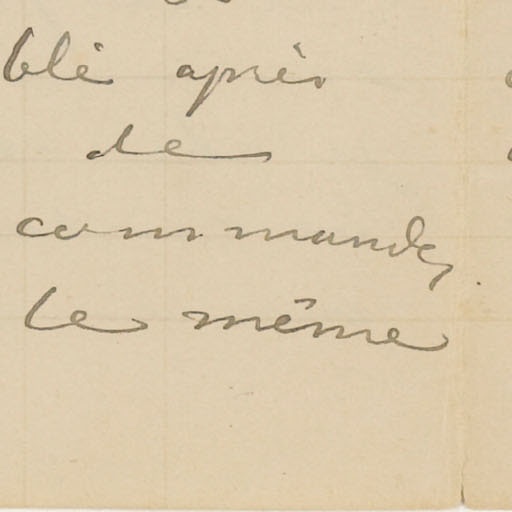 blé après
de
commande,
le même